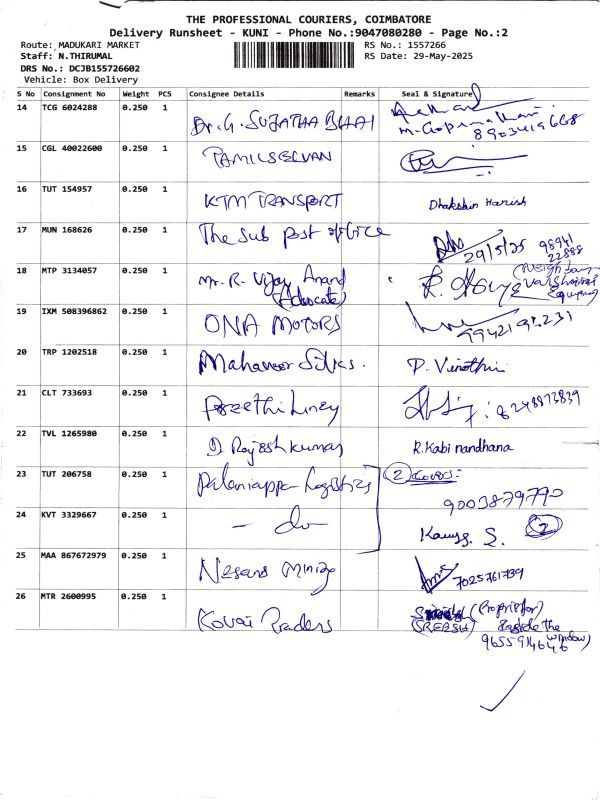 THE PROFESSIONAL COURIERS, COIMBATORE
Delivery Runsheet - KUNI - Phone No.:9047080280 - Page No.:2
Route: MADUKARI MARKET
RS No.: 1557266
Staff: N.THIRUMAL
RS Date: 29-May-2025
DRS No.: DCJB155726602
Vehicle: Box Delivery
S No Consignment No Weight PCS Consignee Details Remarks Seal & Signature
14 TCG 6024288 0.250 1 Dr. G. SUJATHA BHAI
8903419668
15 CGL 40022600 0.250 1 TAMILSELVAN
16 TUT 154957 0.250 1 KTM TRANSPORT Dhakshin Harish
17 MUN 168626 0.250 1 The Sub post office
29/5/25 98941
22888
18 MTP 3134057 0.250 1 Mr. R. Vijay Anand
(Advocate)
19 IXM 508396862 0.250 1 ONA MOTORS
20 TRP 1202518 0.250 1 Mahaveer Silks. P. Vinothini
21 CLT 733693 0.250 1 Preethi Liney : 8248873839
22 TVL 1265980 0.250 1 D. Rajesh kumar R.Kabi nandhana
23 TUT 206758 0.250 1 Palaniappa Logistics (2) Covers:
9003879790
24 KVT 3329667 0.250 1 - do - S. (2)
25 MAA 867672979 0.250 1 7025761739
26 MTR 2600995 0.250 1 Kovai Traders (Proprietor)
(SREESH) Inside the
window)
9655914646